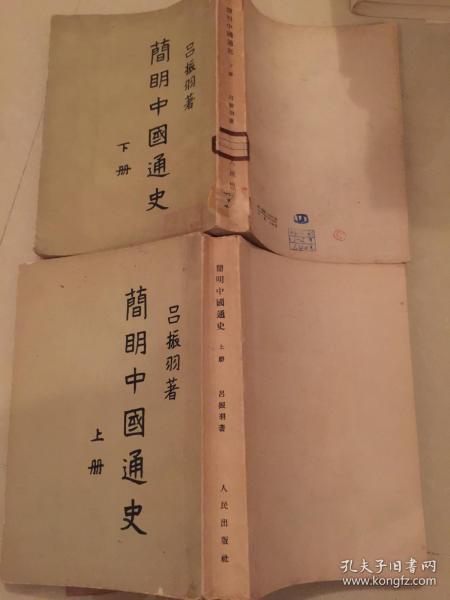 簡明中國通史
呂振羽著
下册
簡明中國通史 下册
呂振羽著
簡明中國通史
呂振羽著
上册
簡明中國通史 上册
呂振羽著
人民出版社
孔夫子旧书网
www.kongfz.com